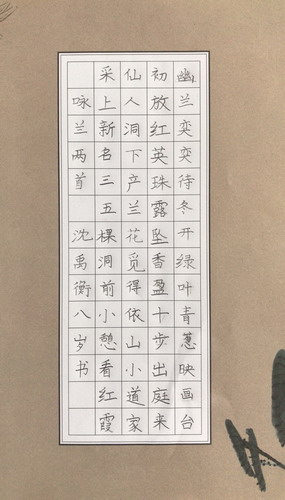 幽兰奕奕待冬开绿叶青葱映画台
初放红英珠露坠香盈十步出庭来
仙人洞下产兰花觅得依山小道家
采上新名三五棵洞前小憩看红霞
咏兰两首 沈禹衡八岁书